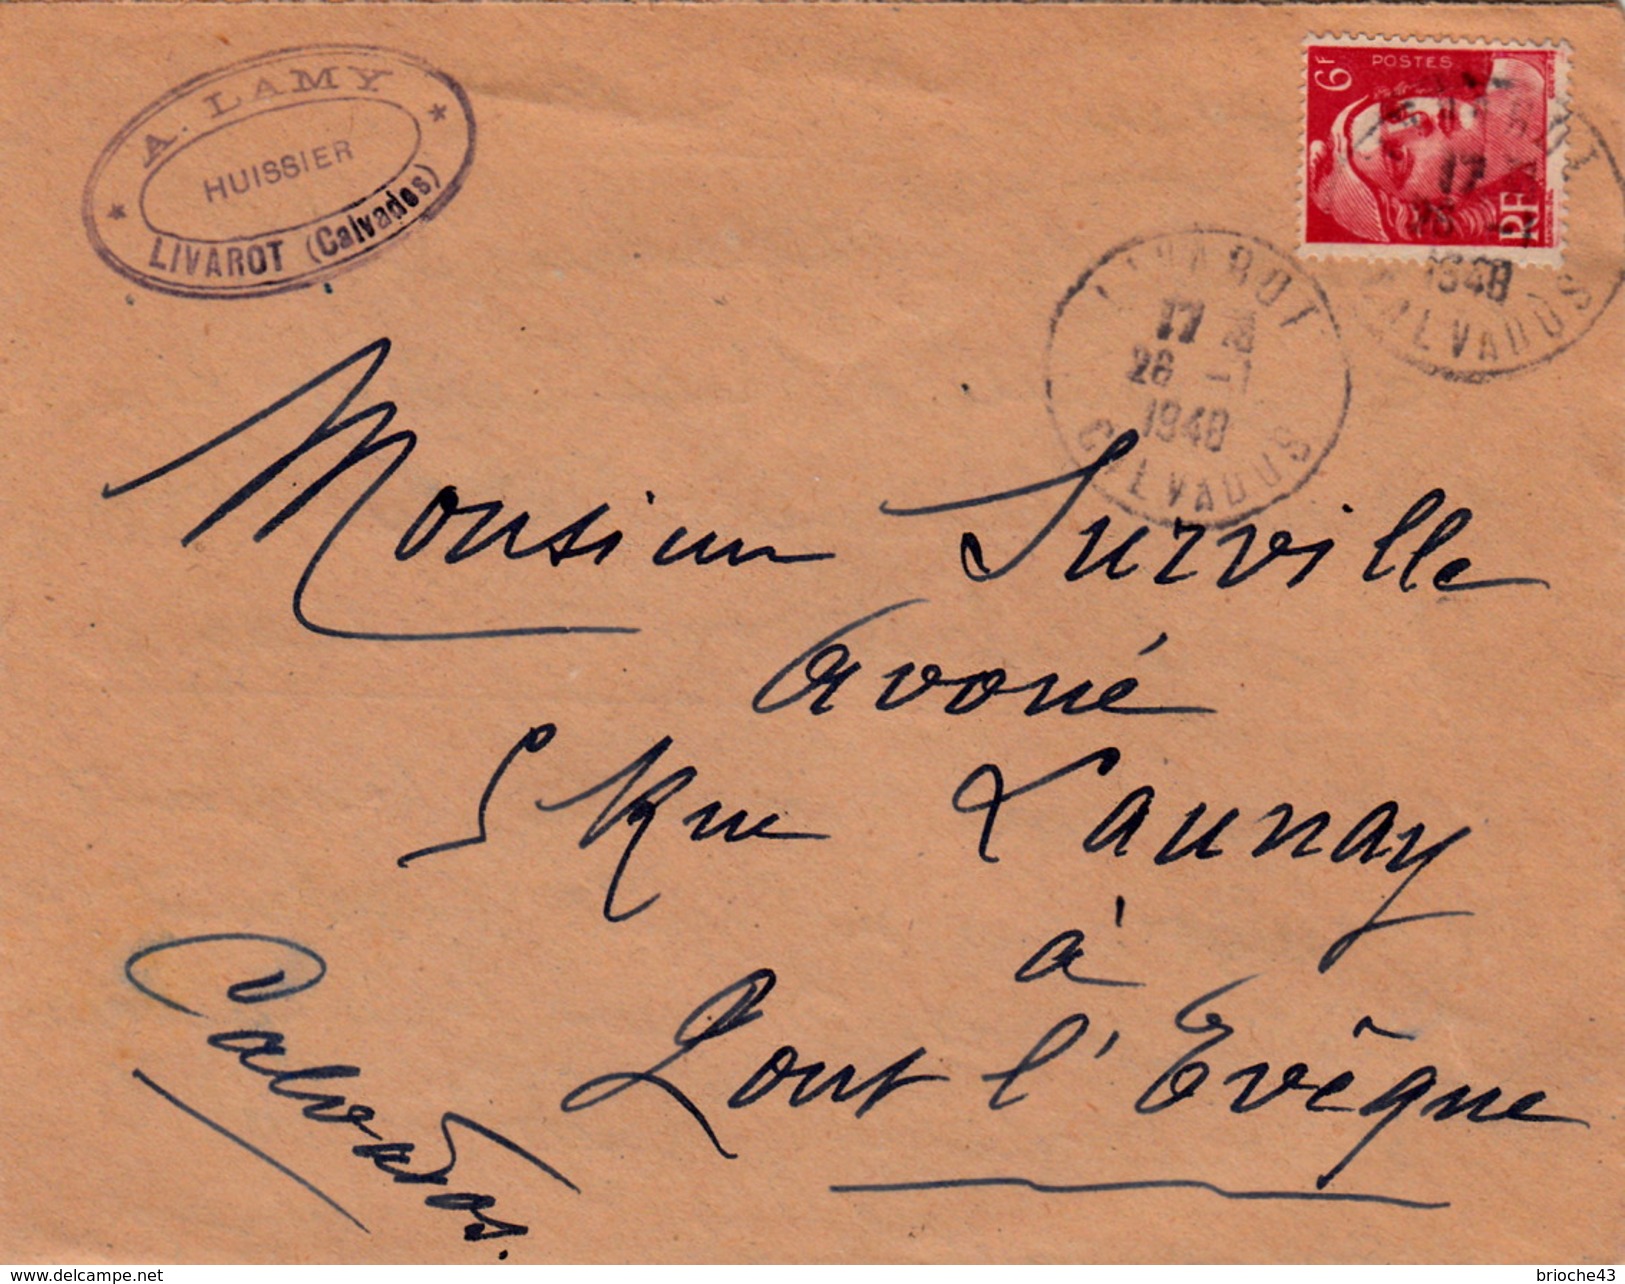 A. LAMY
HUISSIER
LIVAROT (Calvados)
6F
POSTES
RF
17
26 -1
1948
CALVADOS
LIVAROT
17 
26 -1
1948
CALVADOS
Monsieur Surville
avoué
5 Rue Launay
à
Pont l'Evêque
Calvados.
delcampe.net
brioche43